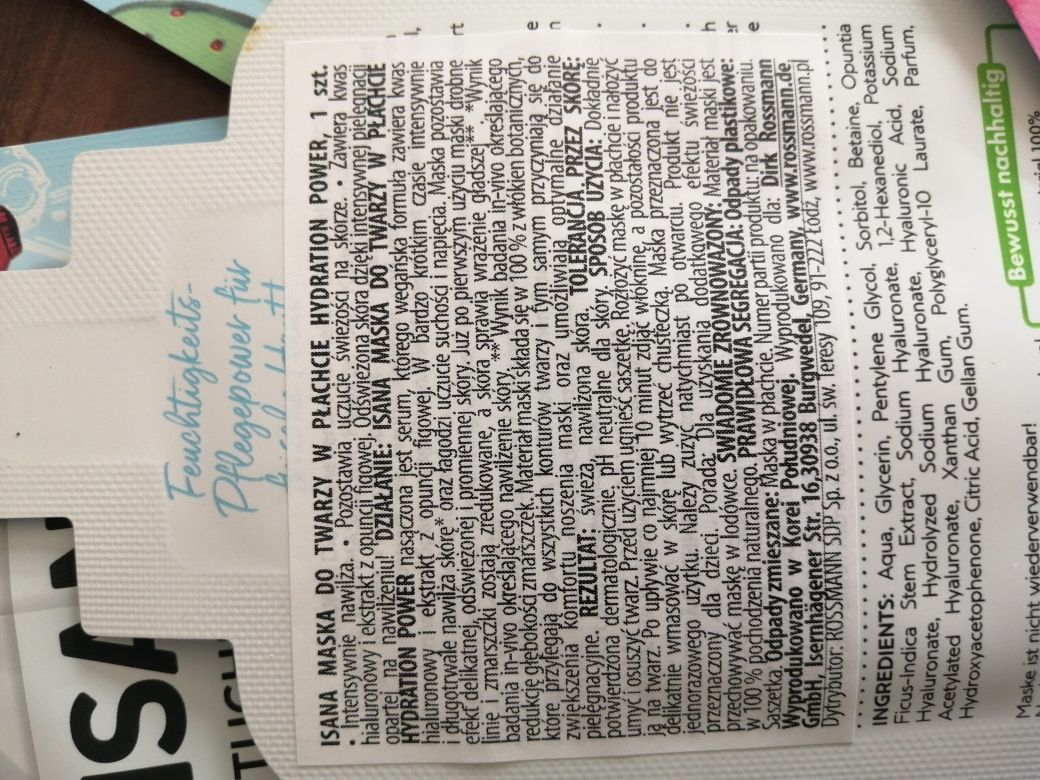 Feuchtigkeits-
Pflegepower für
ISANA MASKA DO TWARZY W PŁACHCIE HYDRATION POWER, 1 szt.
• Intensywnie nawilża. • Pozostawia uczucie świeżości na skórze. • Zawiera kwas
hialuronowy i ekstrakt z opuncji figowej. Odświeżona skóra dzięki intensywnej pielęgnacji
opartej na nawilżeniu! DZIAŁANIE: ISANA MASKA DO TWARZY W PŁACHCIE
HYDRATION POWER nasączona jest serum, którego wegańska formuła zawiera kwas
hialuronowy i ekstrakt z opuncji figowej. W bardzo krótkim czasie intensywnie
i długotrwale nawilża skórę* oraz łagodzi uczucie suchości i napięcia. Maska pozostawia
efekt delikatnej, odświeżonej i promiennej skóry. Już po pierwszym użyciu maski drobne
linie i zmarszczki zostają zredukowane, a skóra sprawia wrażenie gładszej**. *Wynik
badania in-vivo określającego nawilżenie skóry. **Wynik badania in-vivo określającego
redukcję głębokości zmarszczek. Materiał maski składa się w 100 % z włókien botanicznych,
które przylegają do wszystkich konturów twarzy i tym samym przyczyniają się do
zwiększenia komfortu noszenia maski oraz umożliwiają optymalne działanie
pielęgnacyjne. REZULTAT: świeża, nawilżona skóra. TOLERANCJA PRZEZ SKÓRĘ:
potwierdzona dermatologicznie, pH neutralne dla skóry. SPOSÓB UŻYCIA: Dokładnie
umyć i osuszyć twarz. Przed użyciem ugnieść saszetkę. Rozłożyć maskę w płachcie i nałożyć
ją na twarz. Po upływie co najmniej 10 minut zdjąć włókninę a pozostałości produktu
delikatnie wmasować w skórę lub wytrzeć chusteczką. Maska przeznaczona jest do
jednorazowego użytku. Należy zużyć natychmiast po otwarciu. Produkt nie jest
przeznaczony dla dzieci. Porada: Dla uzyskania dodatkowego efektu świeżości
przechowywać maskę w lodówce. ŚWIADOMIE ZRÓWNOWAŻONY: Materiał maski jest
w 100 % pochodzenia naturalnego. PRAWIDŁOWA SEGREGACJA: Odpady plastikowe:
Saszetka. Odpady zmieszane: Maska w płachcie. Numer partii produktu: na opakowaniu.
Wyprodukowano w Korei Południowej. Wyprodukowano dla: Dirk Rossmann
GmbH, Isernhägener Str. 16, 30938 Burgwedel, Germany, www.rossmann.de,
Dytrybutor: ROSSMANN SDP Sp. z o.o., ul. św. Teresy 109, 91-222 Łódź, www.rossmann.pl
INGREDIENTS: Aqua, Glycerin, Pentylene Glycol, Sorbitol, Betaine, Opuntia
Ficus-Indica Stem Extract, Sodium Hyaluronate, 1,2-Hexanediol, Potassium
Hyaluronate, Hydrolyzed Sodium Hyaluronate, Hyaluronic Acid, Sodium
Acetylated Hyaluronate, Xanthan Gum, Polyglyceryl-10 Laurate, Parfum,
Hydroxyacetophenone, Citric Acid, Gellan Gum.
Bewusst nachhaltig
100%
Maske ist nicht wiederverwendbar!